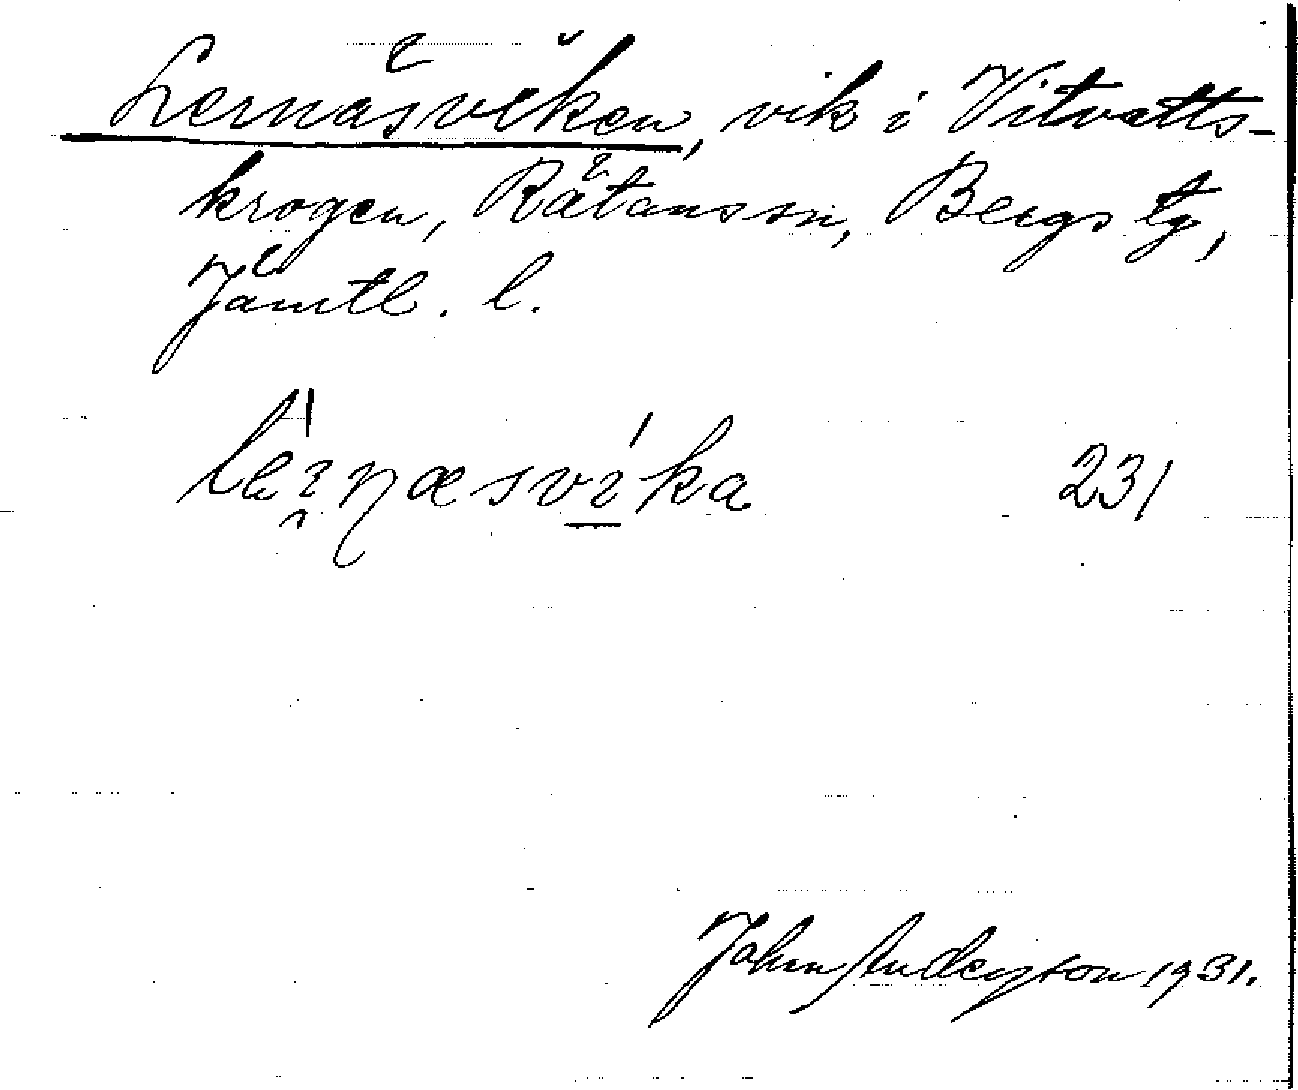 Lernäsviken, vik i Vitvatts-
krogen, Rätanssn, Bergs tg,
Jämtl. l.
231
John Anderson 1931.